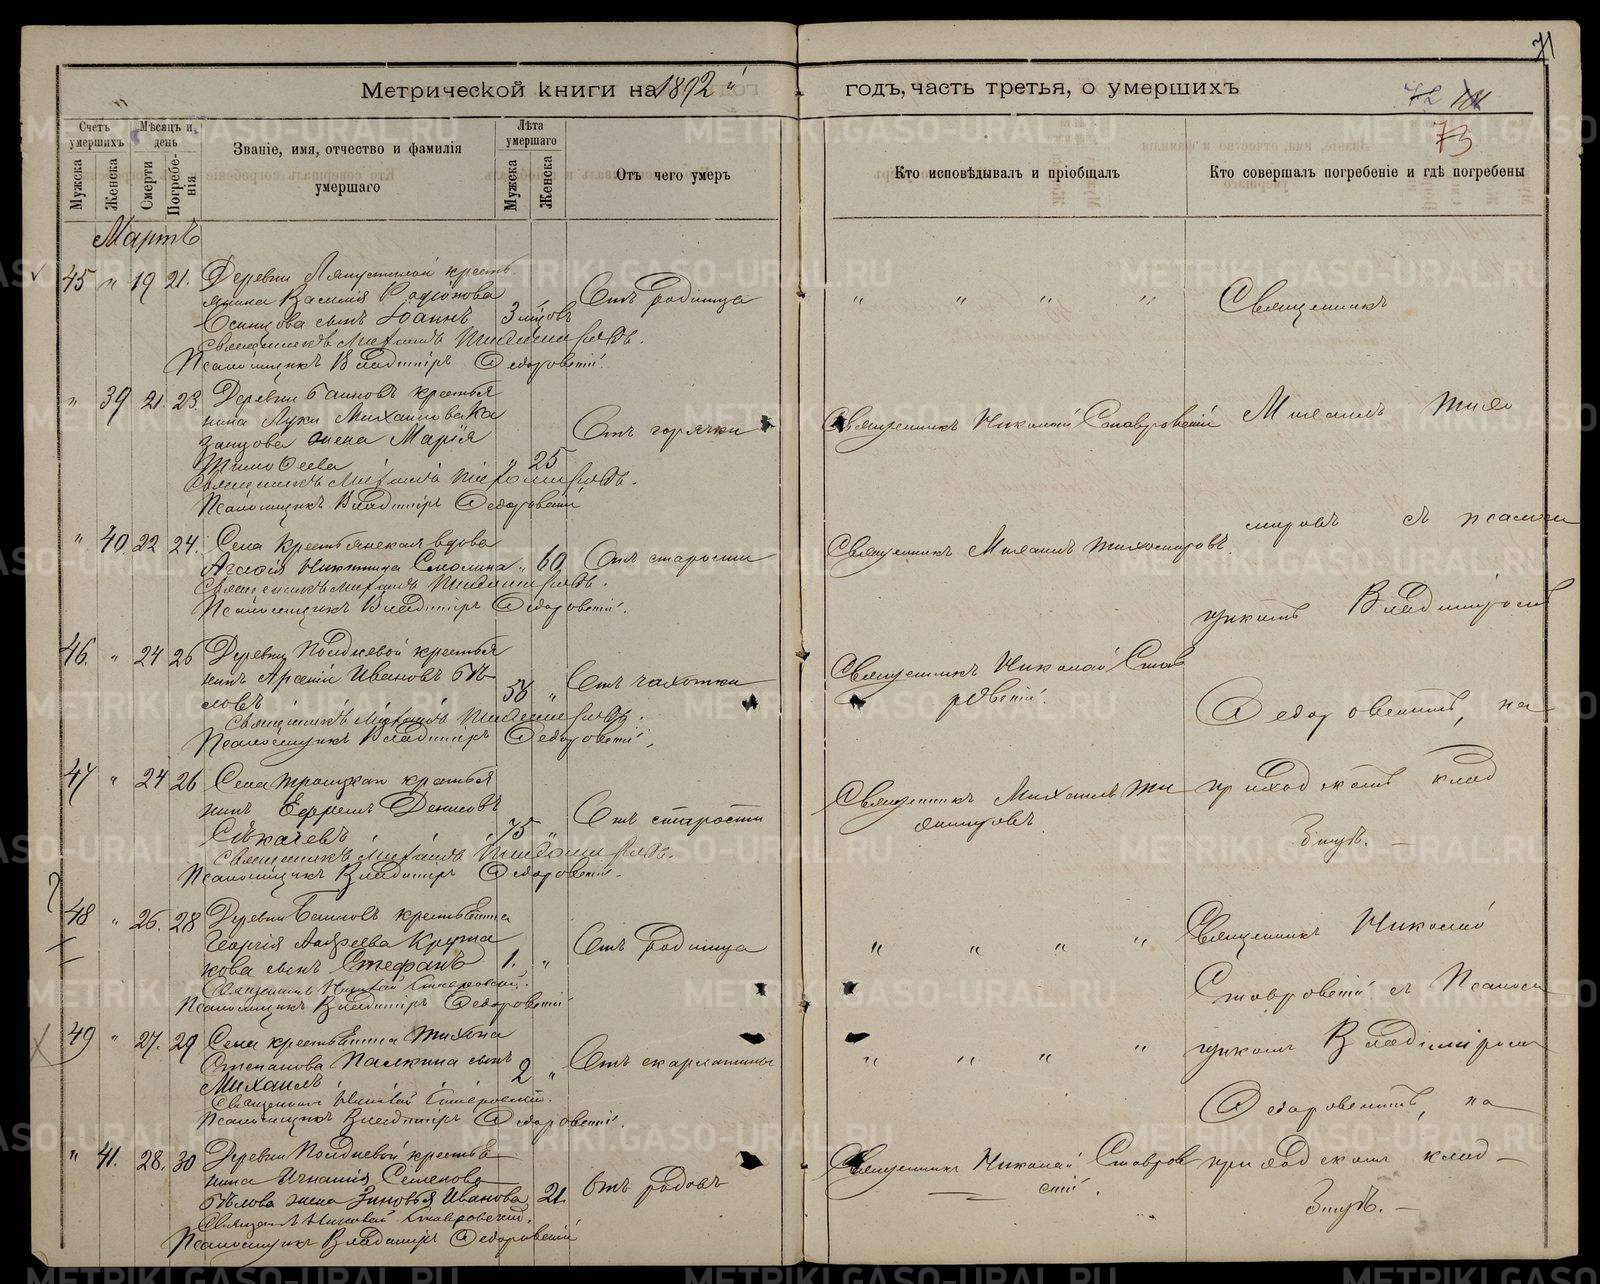 71
Метрической книги на 1892 й годъ, часть третья, о умершихъ
72
73
Счетъ умершихъ
Мѣсяцъ и день
Званіе, имя, отчество и фамилія умершаго
Лѣта умершаго
Отъ чего умеръ
Кто исповѣдывалъ и пріобщалъ
Кто совершалъ погребеніе и гдѣ погребены
Мужска
Женска
Смерти
Погребенія
Мужска
Женска
Мартъ
45 " 19 21. Деревни Ляпустиной кресть
янина Василія Родіонова
Осинцова сынъ Іоаннъ 3 мѣс. Отъ родимца " " " " Священникъ
Священникъ Михаилъ Тихомировъ.
Псаломщикъ Владиміръ Федоровскій.
" 39 21. 23 Деревни Баиновъ крестья
нина Луки Михайлова Ка
занцова жена Марія Отъ горячки Священникъ Николай Ставровскій Михаилъ Тихо
Тимофеева " 25
Священникъ Михаилъ Тихомировъ.
Псаломщикъ Владиміръ Федоровскій
" 40. 22 24. Села крестьянская вдова мировъ съ псалом
Никитина Смолина " 60 Отъ старости Священникъ Михаилъ Тихомировъ.
Священникъ Михаилъ Тихомировъ.
Псаломщикъ Владиміръ Федоровскій. щикомъ Владиміромъ
46. " 24 26 Деревни Полдневой крестья
нинъ Арсеній Ивановъ Бѣ Отъ чахотки Священникъ Николай Став
ловъ " ровскій. Федоровскимъ, на
Священникъ Михаилъ Тихомировъ.
Псаломщикъ Владиміръ Федоровскій.
47 " 24 26 Села Троицкаго крестья приходскомъ клад
нинъ Ефремъ Денисовъ Отъ старости Священникъ Михаилъ Ти
Сѣкачевъ 75 " хомировъ. бищѣ. —
Священникъ Михаилъ Тихомировъ.
Псаломщикъ Владиміръ Федоровскій.
48 " 26. 28 Деревни Баиновъ крестьянина Священникъ Николай
Георгія Андреева
сынъ Стефанъ 1. " Отъ родимца " " " "
Священникъ Николай Ставровскій. Ставровскій съ Псалом
Псаломщикъ Владиміръ Федоровскій
49 " 27. 29 Села крестьянина Тихона щикомъ Владиміромъ
Степанова Палкина сынъ Отъ скарлатины " " " "
Михаилъ 2 "
Священникъ Николай Ставровскій. Федоровскимъ, на
Псаломщикъ Владиміръ Федоровскій.
" 41. 28. 30 Деревни Полдневой крестья
нина Игнатія Семенова Отъ родовъ Священникъ Николай Ставров приходскомъ клад
Бѣлова жена Зиновья Иванова 21. скій. бищѣ. —
Священникъ Николай Ставровскій.
Псаломщикъ Владиміръ Федоровскій
METRIKI.GASO-URAL.RU